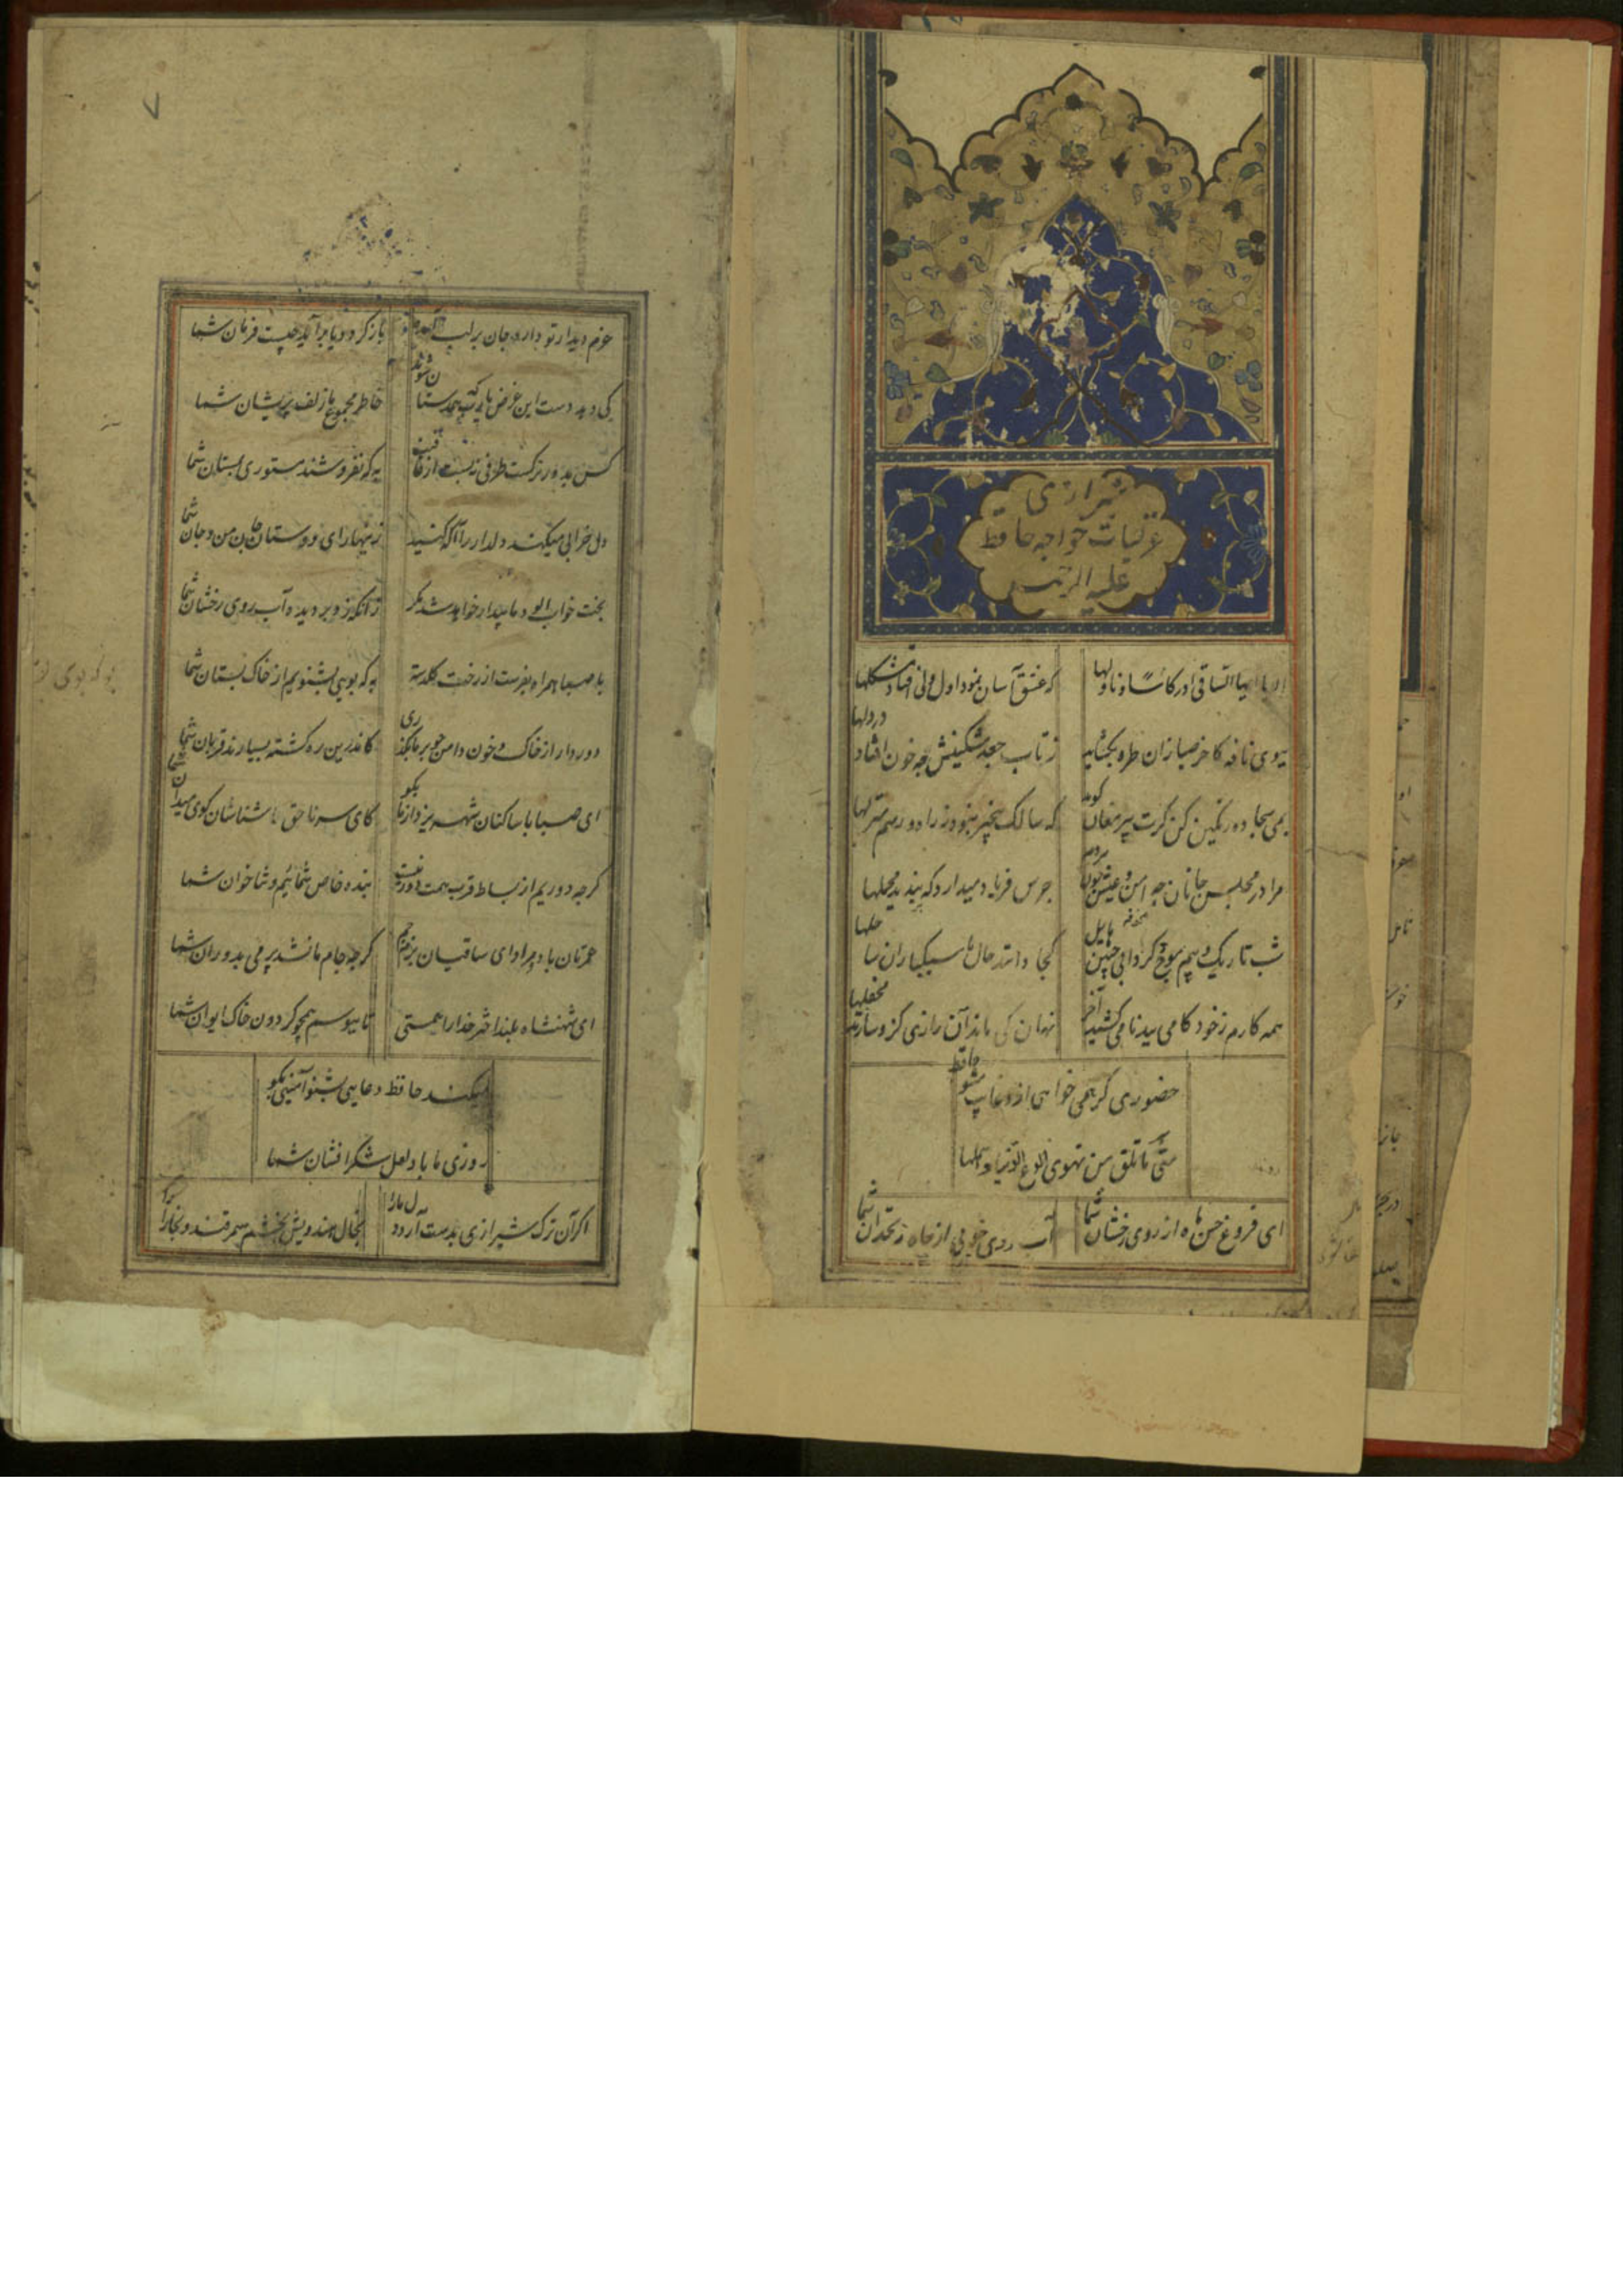 شیرازی
غزلیات خواجه حافظ
علیه الرحمه
الا یا ایها الساقی ادر کاسا و ناولها که عشق آسان نمود اول ولی افتاد مشکلها
ببوی نافه کاخر صبا زان طره بکشاید ز تاب جعد مشکینش چه خون افتاد در دلها
بمی سجاده رنگین کن کرت پیر مغان کوید که سالک بیخبر نبود ز راه و رسم منزلها
مرا در مجلس جانان چه امن و عیش چون هردم جرس فریاد میدارد که بندید محملها
شب تاریک و بیم موج و کردابی چنین هایل کجا دانند حال ما سبکباران ساحلها
همه کارم ز خود کامی ببدنامی کشید آخر نهان کی ماند آن رازی کزو سازند محفلها
حضوری کر همی خواهی ازو غایب مشو حافظ
متی ما تلق من تهوی دع الدنیا و اهملها
ای فروغ حسن ماه از روی رخشان شما آب روی خوبی از چاه زنخدان شما
۷
عزم دیدار تو دارد جان بر لب آمده باز کردد یا برآید چیست فرمان شما
کی دهد دست این غرض یارب که همدستان شوند خاطر مجموع ما زلف پریشان شما
کس بدور نرکست طرفی نبست از عافیت به که نفروشند مستوری بمستان شما
دل خرابی میکند دلدار را آکه کنید زینهار ای دوستان جان من و جان شما
بخت خواب آلود ما بیدار خواهد شد مکر زانکه زد بر دیده آب روی رخشان شما
با صبا همراه بفرست از رخت کلدسته بو که بویی بشنویم از خاک بستان شما
دور دار از خاک و خون دامن چو بر ما بکذری کاندرین ره کشته بسیارند قربان شما
ای صبا با ساکنان شهر یزد از ما بکو کای سر ناحق شناسان کوی میدان شما
کرچه دوریم از بساط قرب همت دور نیست بنده خاص شمائیم و ثنا خوان شما
عمرتان باد و مراد ای ساقیان بزم جم کرچه جام ما نشد پر می بدوران شما
ای شهنشاه بلند اختر خدا را همتی تا ببوسم همچو کردون خاک ایوان شما
میکند حافظ دعایی بشنو آمینی بکو
روزی ما باد لعل شکر افشان شما
اکر آن ترک شیرازی بدست آرد دل ما را بخال هندویش بخشم سمرقند و بخارا را